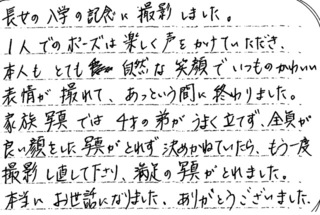 長女の入学の記念に撮影しました。
1人でのポーズは楽しく声をかけていただき、
本人もとても自然な笑顔でいつものかわいい
表情が撮れて、あっという間に終わりました。
家族写真では4才の弟がうまく立てず、全員が
良い顔をした写真がとれず決めかねていたら、もう一度
撮影し直して下さり、満足の写真がとれました。
本当にお世話になりました、ありがとうございました。